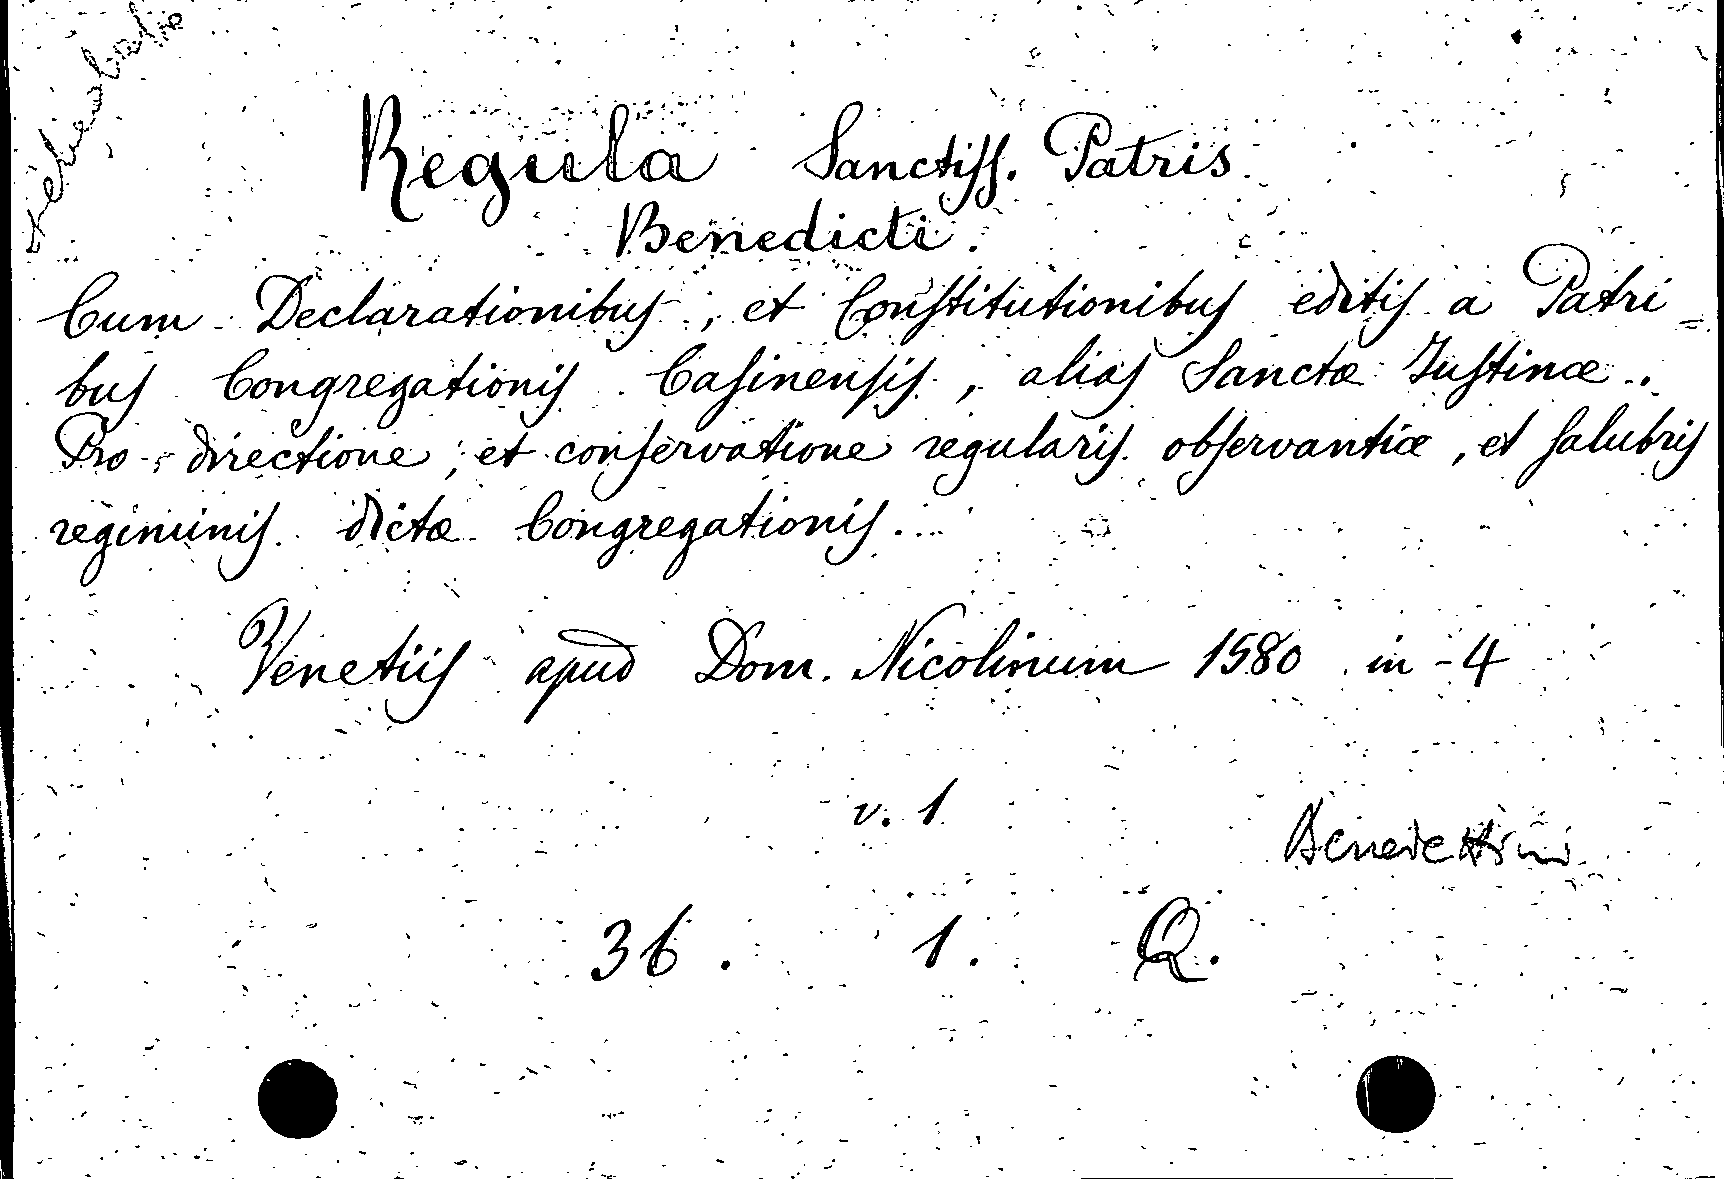 Regula Sanctiss. Patris
Benedicti.
Cum Declarationibus, et Constitutionibus editis a Patri=
bus Congregationis Casinensis, alias Sanctæ Iustinæ.
Pro directione, et conservatione regularis observantiæ, et salubris
regiminis dictæ Congregationis.
Venetiis apud Dom. Nicolinum 1580 in-4
v. 1
Benedettini
36. 1. Q.